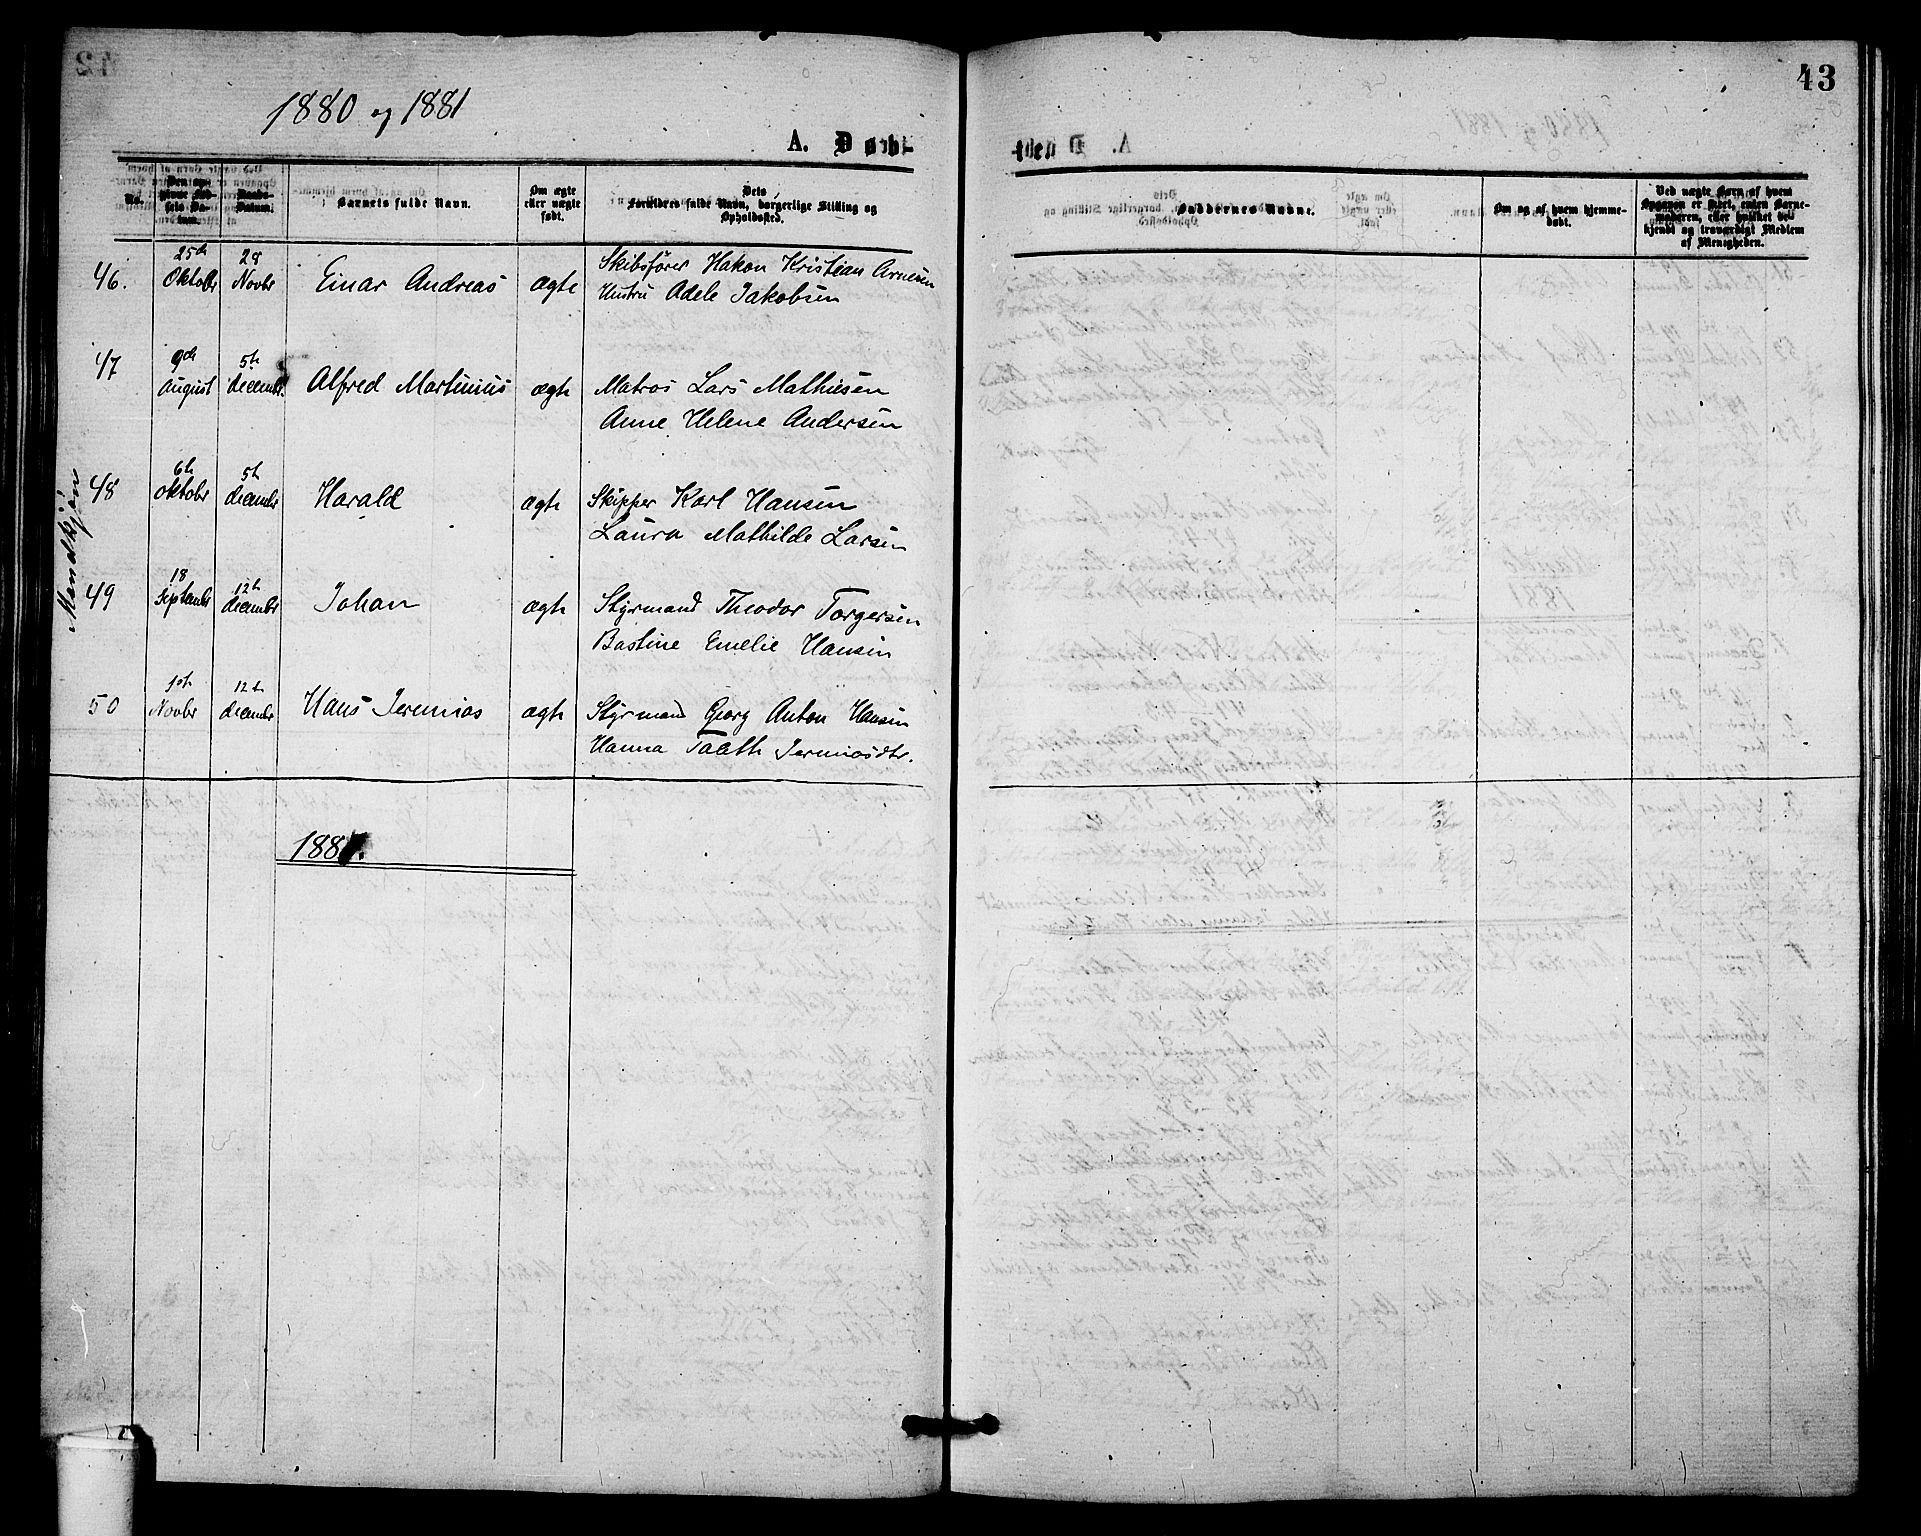 1880 og 1881
43
A. Døbt
No.
Den opgivne Fødsels Datum.
Daabs-Datum.
Barnets fulde Navn.
Om ægte eller uægte født.
Dets Forældres fulde Navn, borgerlige Stilling og Opholdssted.
Faddernes Navne.
Om og af hvem hjemmedøbt.
Ved uægte Børn, af hvem Opgaven er skeet, enten Barnemoderen, eller hvilket bekjendt og troværdigt Medlem af Menigheden.
Mandkjøn
25de 28
46. Oktobr Novbr Einar Andreas ægte Skibsfører Hakon Kristian Arnesen
Hustru Adele Jakobsen
9de 5te
47 August decembr. Alfred Martinius ægte Matros Lars Mathiesen
Anne Helene Andersen
6te 5te
48 oktobr decembr Harald ægte Skipper Karl Hansen
Laura Mathilde Larsen
18 12te
49 Septembr decembr Johan ægte Styrmand Theodor Torgersen
Bastine Emelie Hansen
1ste 12te
50 Novbr decembr Hans Jeremias ægte Styrmand Georg Anton Hansen
Hanna Jeremiasdtr.
1881.